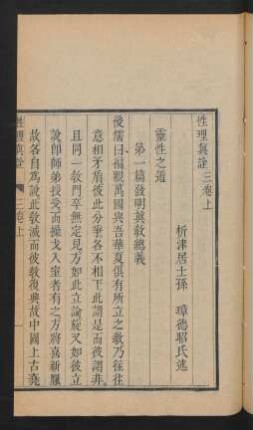 性理眞詮三卷上
析津居士孫 璋德昭氏述
靈性之道
第一篇發明異敎總義
後儒曰福觀萬國與吾華夏俱有所立之敎乃往往
意相矛盾彼此分爭各不相下此謂是而彼謂非
且同一敎門卒無定見方如此立論旋又如彼立
說卽師弟授受而操戈入室者有之方將喜新厭
故各自爲說此敎滅而彼敎復興故中國上古堯
性理眞詮 三卷上